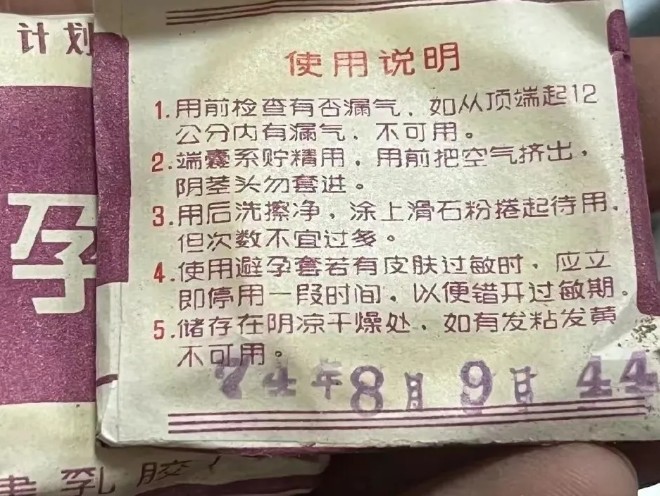 计划
孕
乳胶
使用说明
1.用前检查有否漏气，如从顶端起12
公分内有漏气，不可用。
2.端囊系贮精用，用前把空气挤出，
阴茎头勿套进。
3.用后洗擦净，涂上滑石粉捲起待用，
但次数不宜过多。
4.使用避孕套若有皮肤过敏时，应立
即停用一段时间，以便错开过敏期。
5.储存在阴凉干燥处，如有发粘发黄
不可用。
74年8月9日 44